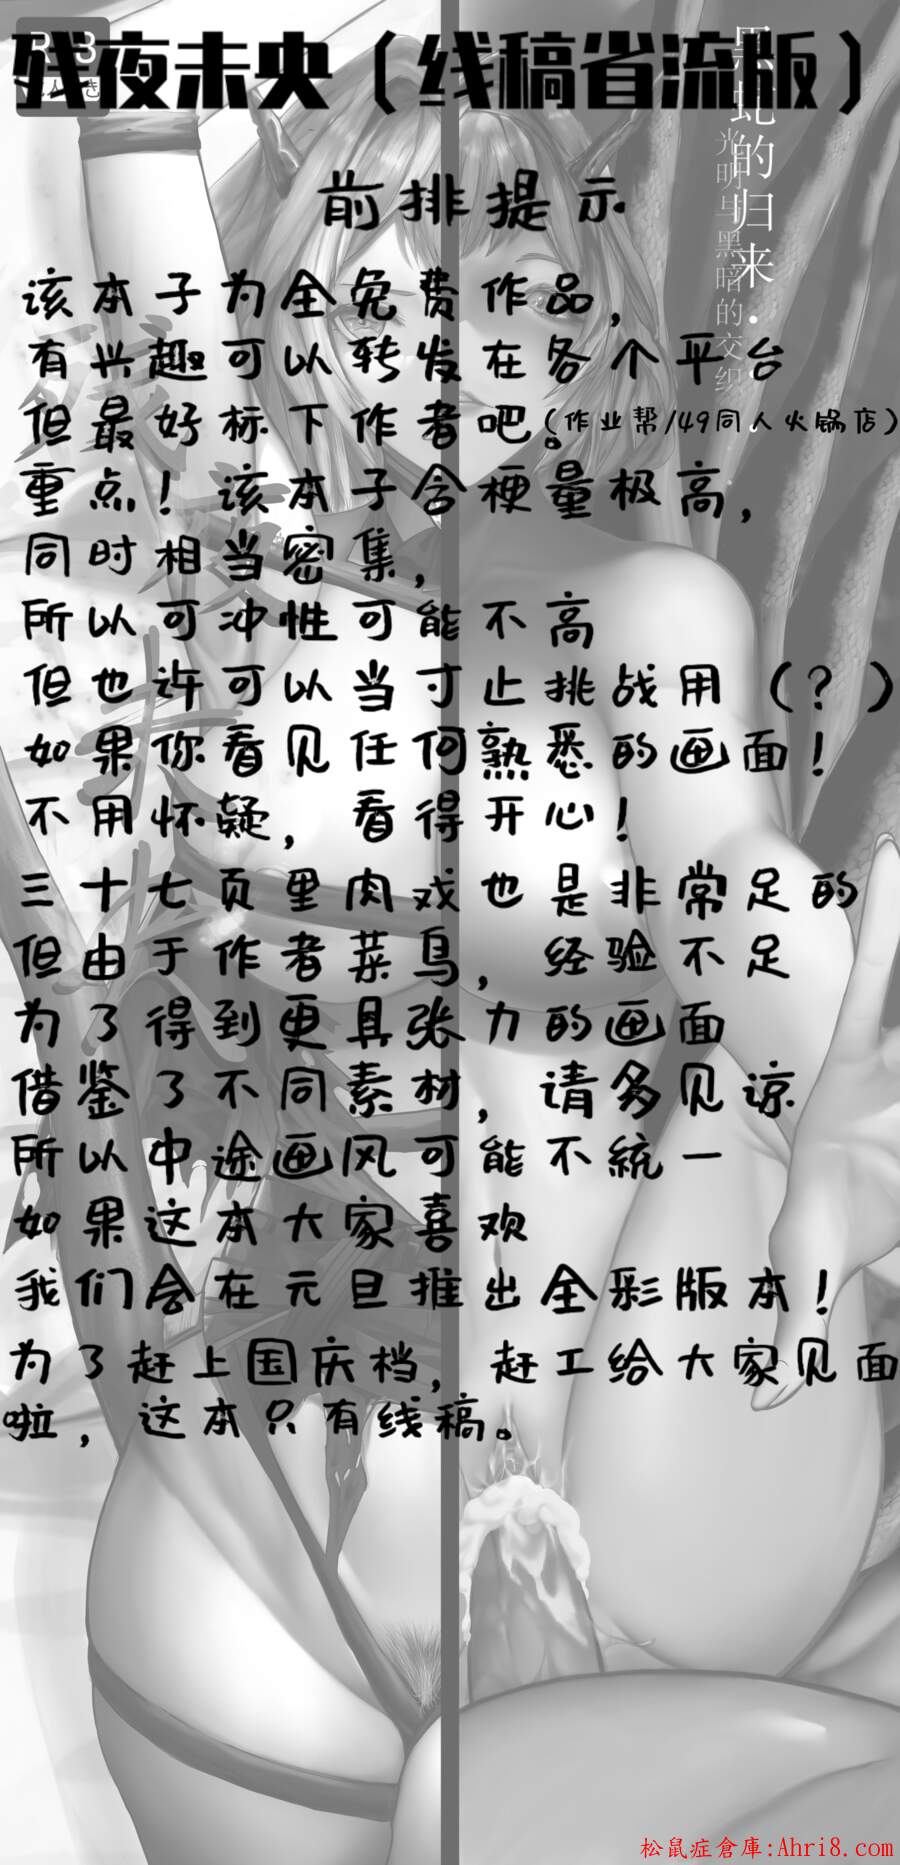 残夜未央（线稿省流版）
前排提示
该本子为全免费作品，
有兴趣可以转发在各个平台
但最好标下作者吧。（作业帮/49同人火锅店）
重点！该本子含梗量极高，
同时相当密集，
所以可冲性可能不高
但也许可以当寸止挑战用（？）
如果你看见任何熟悉的画面！
不用怀疑，看得开心！
三十七页里肉戏也是非常足的
但由于作者菜鸟，经验不足
为了得到更具张力的画面
借鉴了不同素材，请多见谅
所以中途画风可能不統一
如果这本大家喜欢
我们会在元旦推出全彩版本！
为了赶上国庆档，赶工给大家见面
啦，这本只有线稿。
黑蛇的归来
光明与黑暗的交织
松鼠症倉庫:Ahri8.com